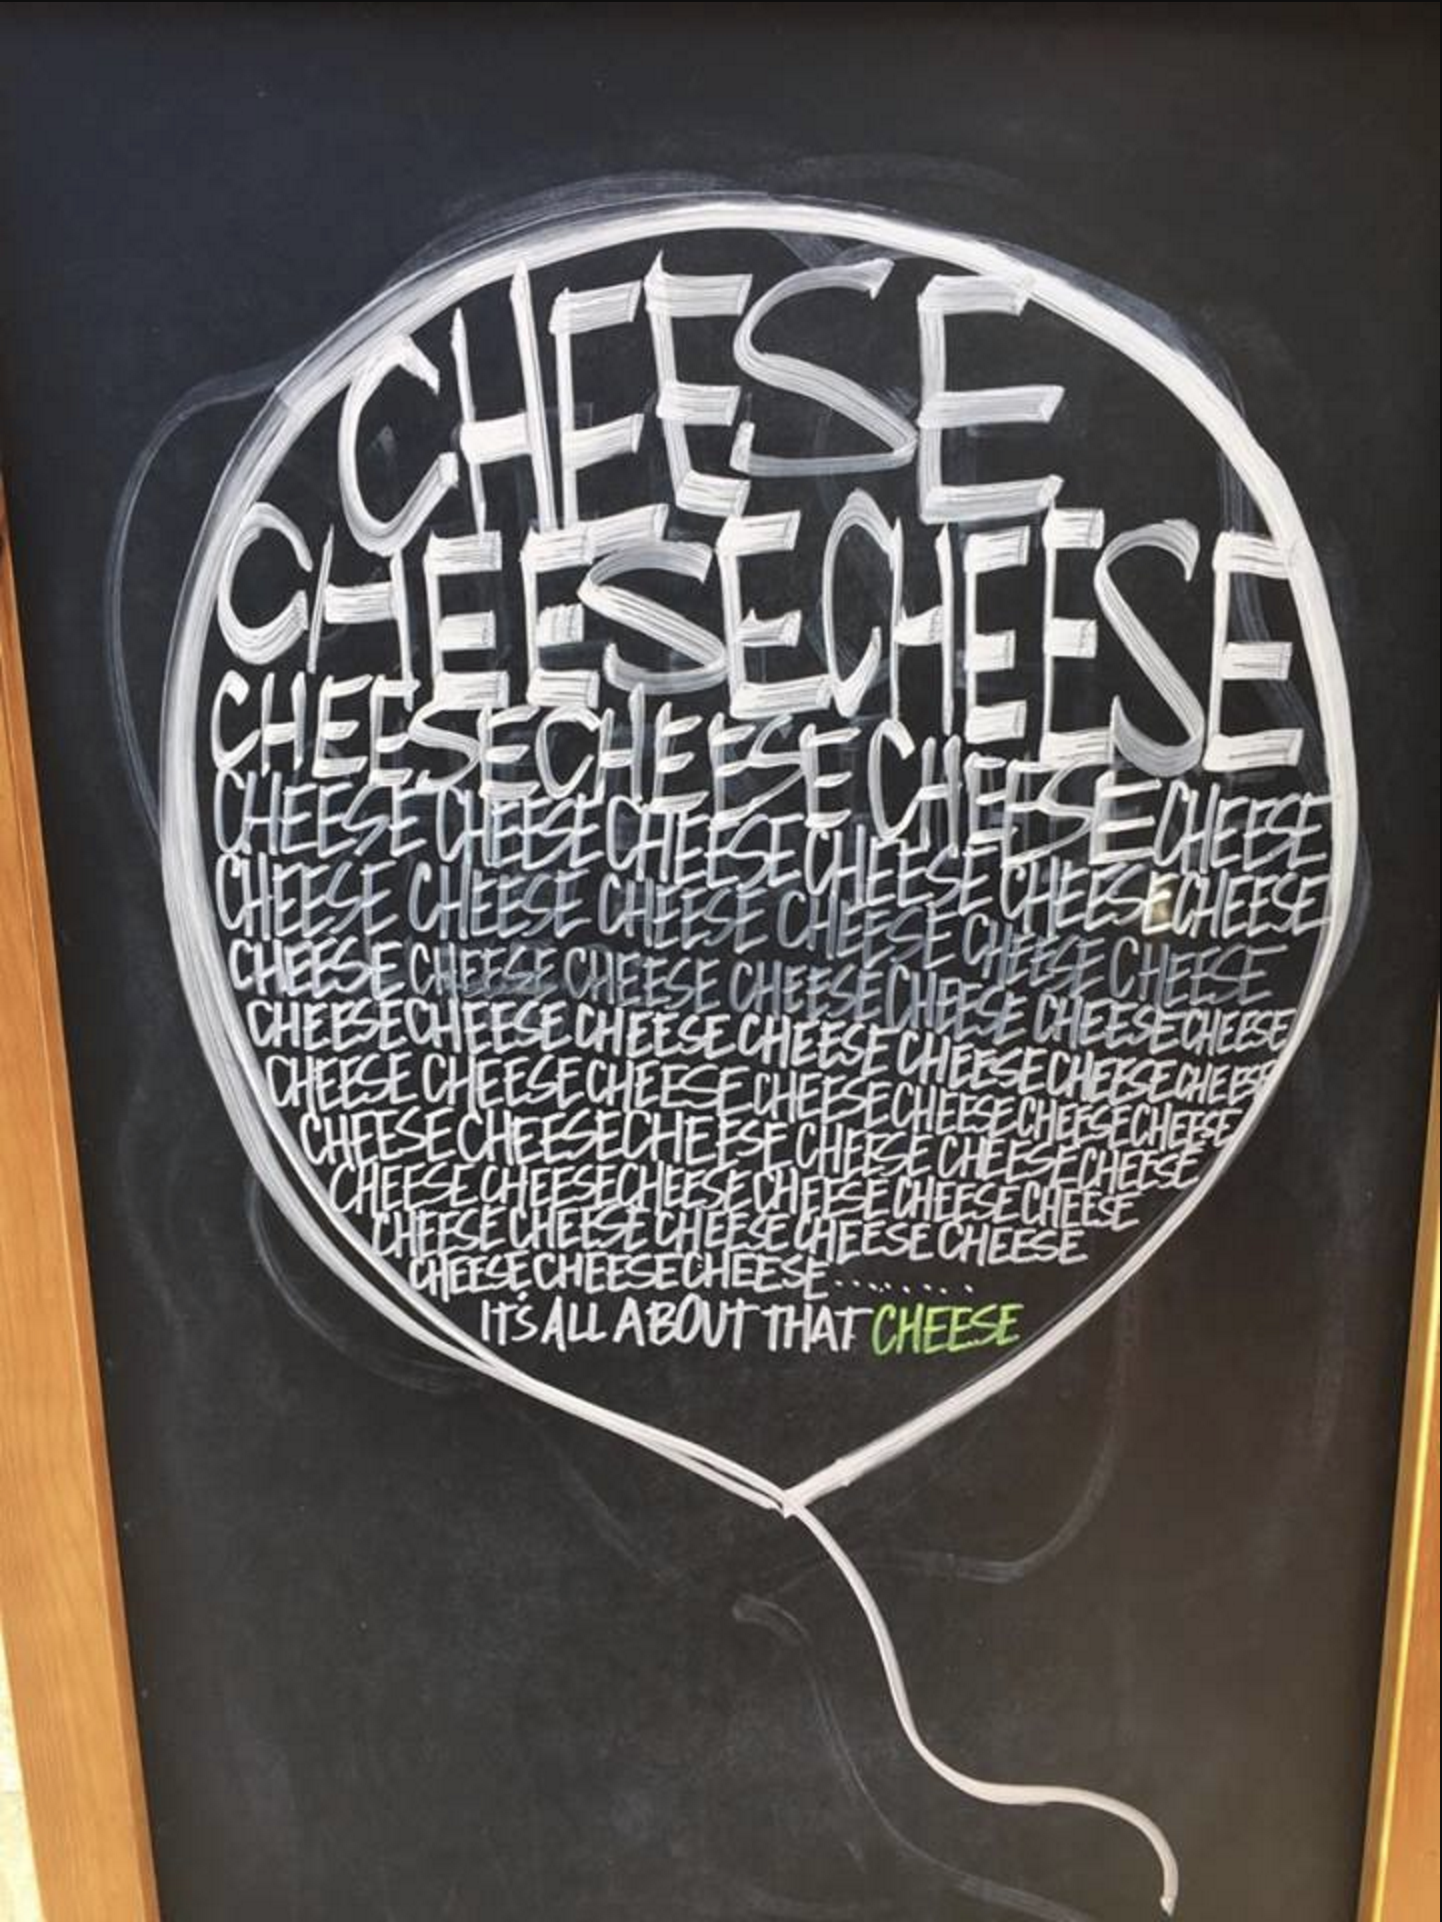 CHEESE
CHEESE CHEESE
CHEESE CHEESE CHEESE CHEESE
CHEESE CHEESE CHEESE CHEESE CHEESE CHEESE
CHEESE CHEESE CHEESE CHEESE CHEESE CHEESE
CHEESE CHEESE CHEESE CHEESE CHEESE CHEESE CHEESE
CHEESE CHEESE CHEESE CHEESE CHEESE CHEESE CHEESE
CHEESE CHEESE CHEESE CHEESE CHEESE CHEESE CHEESE
CHEESE CHEESE CHEESE CHEESE CHEESE CHEESE
CHEESE CHEESE CHEESE CHEESE CHEESE CHEESE
CHEESE CHEESE CHEESE CHEESE CHEESE
CHEESE CHEESE CHEESE.........
IT'S ALL ABOUT THAT CHEESE